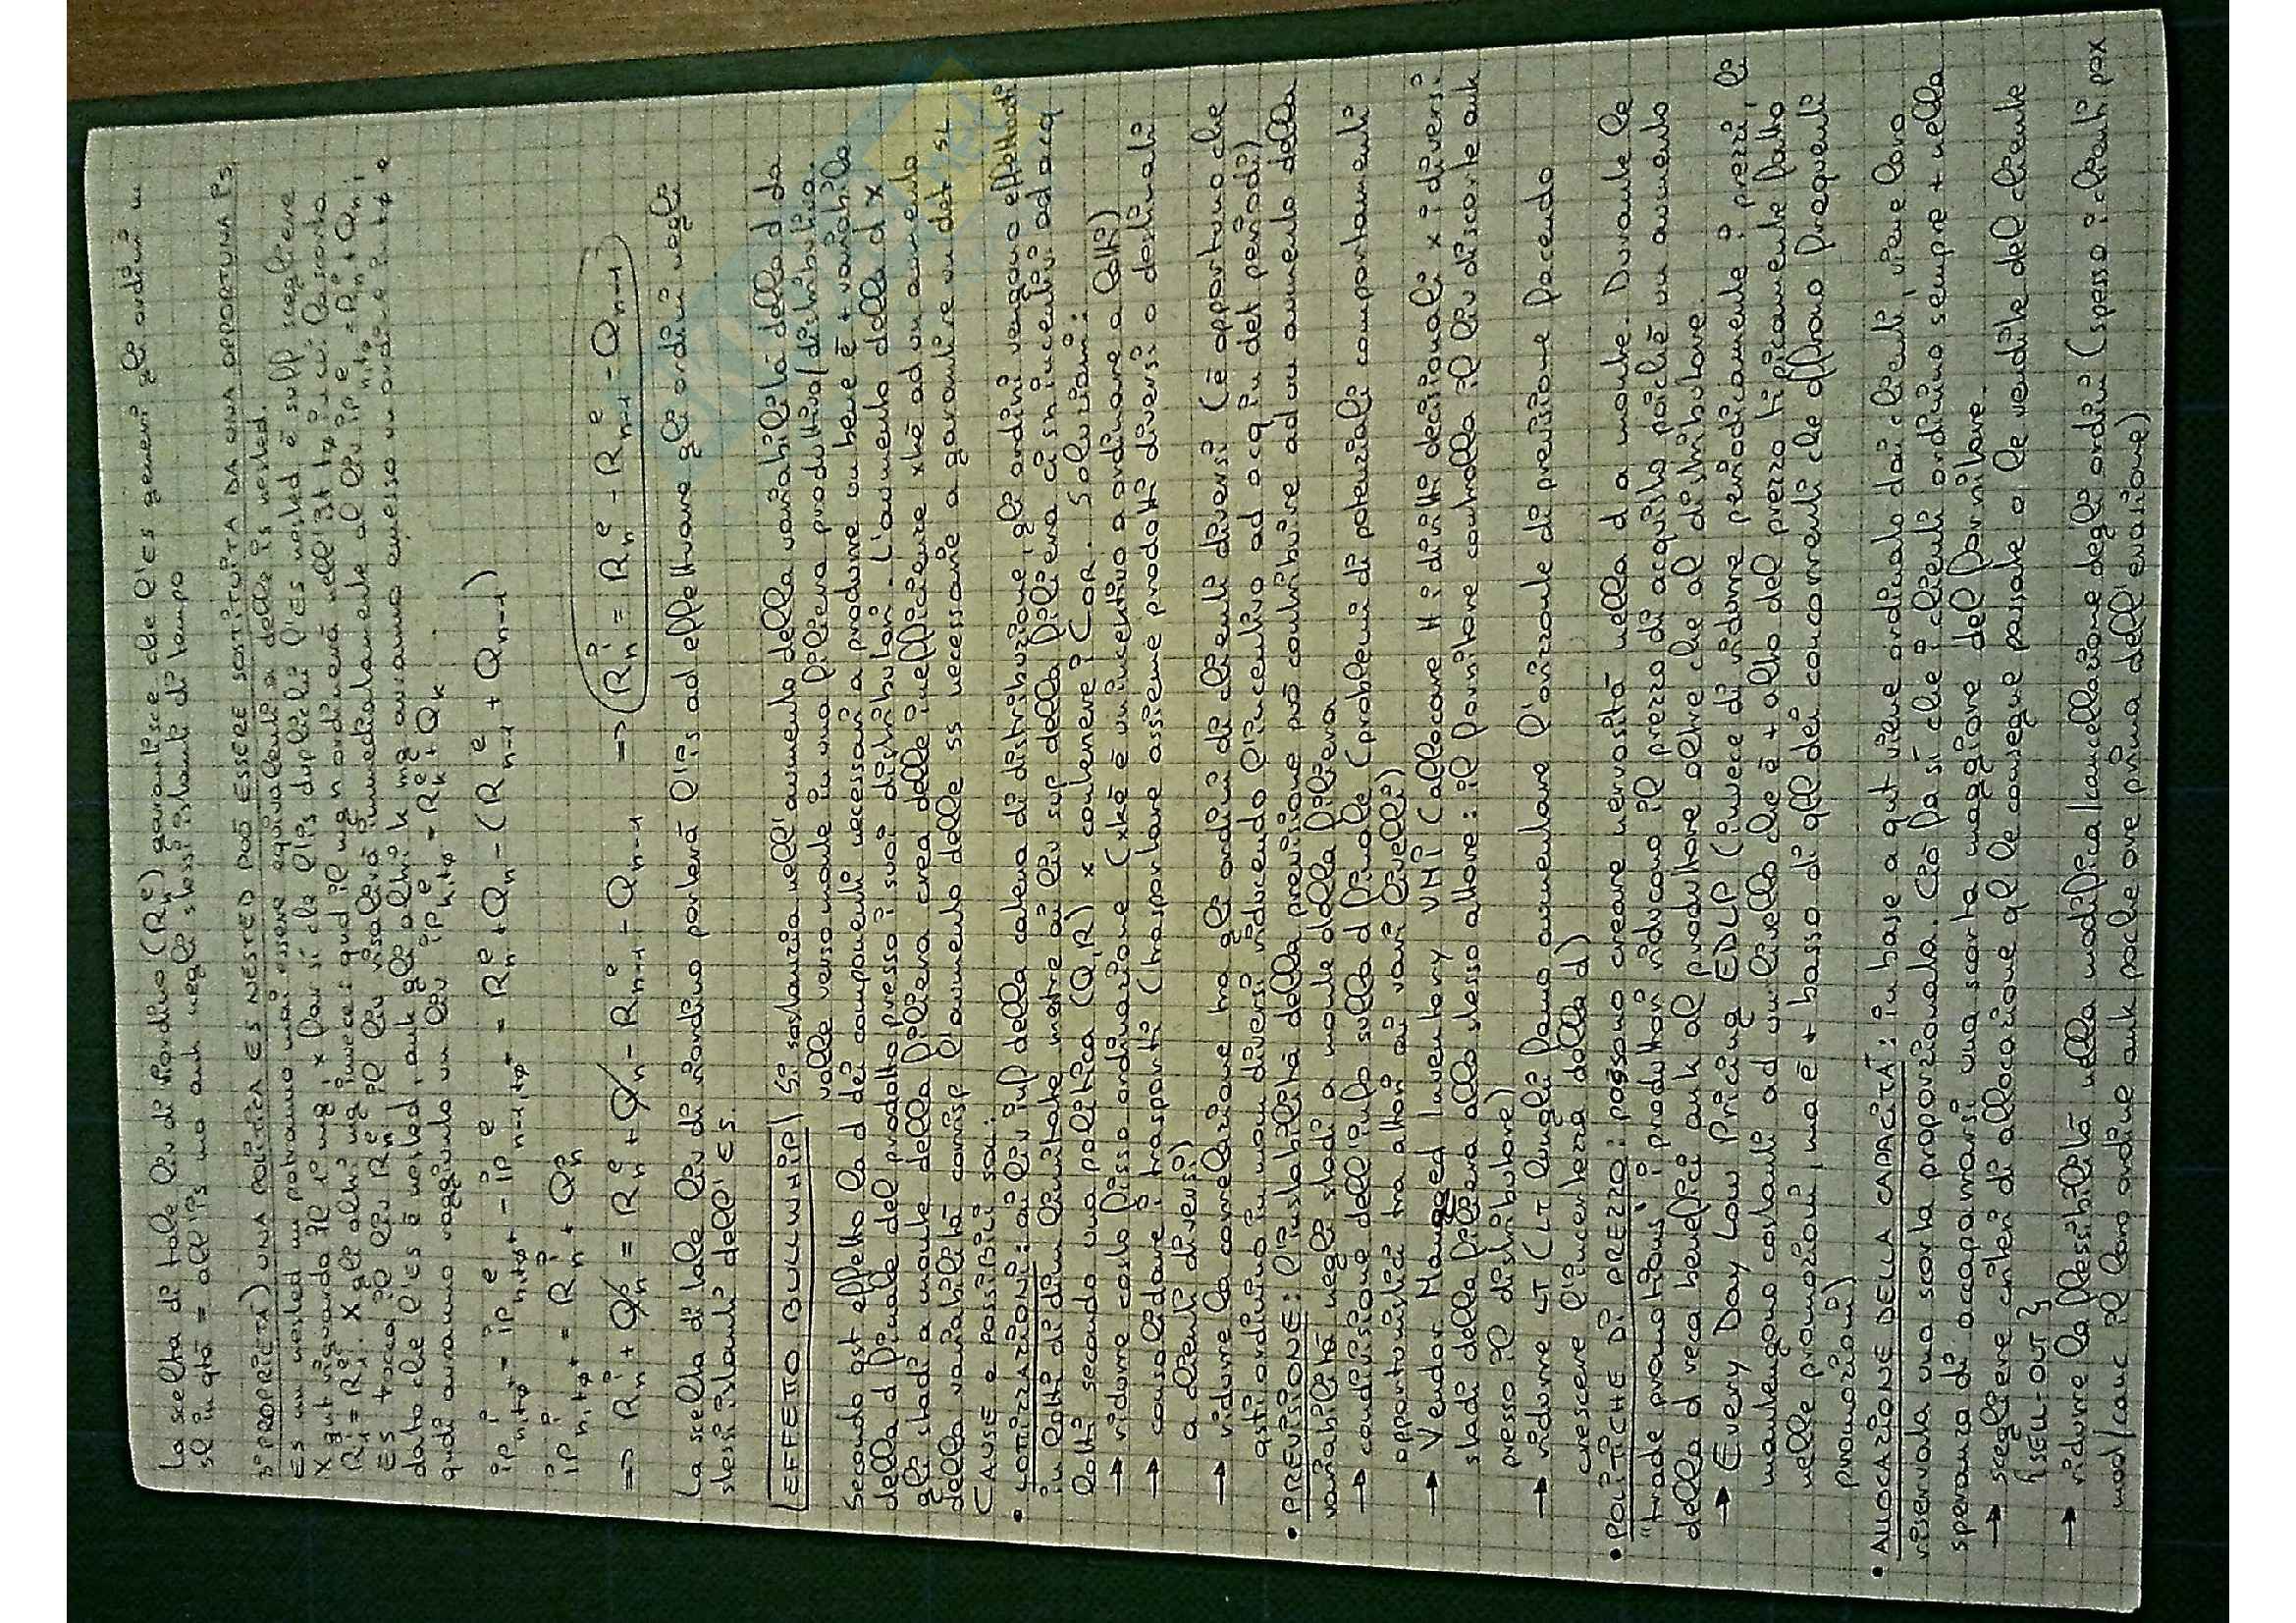 La scelta di tale liv di riordino (Rₙᵉ) garantisce che l'ES generi gli ordini n
sl in qtà = all'IS ma ank negli stessi istanti di tempo
3ª PROPRIETÀ) UNA POLITICA ES NESTED PUÒ ESSERE SOSTITUITA DA UNA OPPORTUNA IS
ES nn nested nn potranno mai essere equivalenti a delle is nested.
X qnt riguarda il 1° mg, x far sì che l'IS duplichi l'ES nested è suff scegliere
R₁ⁱ = R₁ᵉ. X gli altri mg invece: qnd il mg n ordinerà nell'ist t∅ in cui la scorta
ES tocca il liv Rₙᵉ, il liv risalirà immediatamente al liv IPᵉₙ,t∅ = Rₙᵉ + Qₙ;
dato che l'ES è nested, ank gli altri k mg avranno emesso un ordine in t∅ e
qndi avranno raggiunto un liv IPᵉₖ,t∅ = Rₖᵉ + Qₖ
IPⁱₙ,t∅⁺ = IPᵉₙ,t∅⁺ - IPᵉₙ₋₁,t∅⁺ = Rₙᵉ + Qₙ - (Rᵉₙ₋₁ + Qₙ₋₁)
IPⁱₙ,t∅⁺ = Rₙⁱ + Qₙ
=> Rₙⁱ + Qₙ = Rₙᵉ + Qₙ - Rᵉₙ₋₁ - Qₙ₋₁ => Rₙⁱ = Rₙᵉ - Rᵉₙ₋₁ - Qₙ₋₁
La scelta di tale liv di riordino porterà l'IS ad effettuare gli ordini negli
stessi istanti dell'ES.
EFFETTO BULLWHIP Si sostanzia nell'aumento della variabilità della d da
valle verso monte in una filiera produttiva/distributiva.
Secondo qst effetto la d dei componenti necessari a produrre un bene è + variabile
della d finale del prodotto presso i suoi distributori. L'aumento della d x
gli stadi a monte della filiera crea delle inefficienze xkè ad un aumento
della variabilità corrisp l'aumento delle ss necessarie a garantire un det SL
CAUSE e possibili sol:
• LOTIZZAZIONI: ai liv inf della catena di distribuzione, gli ordini vengono effettuati
in lotti di dim limitate mentre ai liv sup della filiera ci sn incentivi ad acq
lotti secondo una politica (Q,R) x contenere i Cor. Soluzioni:
→ ridurre costo fisso ordinazione (xkè è un incentivo a ordinare a lotti)
→ consolidare i trasporti (trasportare assieme prodotti diversi o destinati
a clienti diversi)
→ ridurre la correlazione tra gli ordini di clienti diversi (è opportuno che
qsti ordinino in mom diversi inducendo l'incentivo ad acq in det periodi)
• PREVISIONE: l'instabilità della previsione può contribuire ad un aumento della
variabilità negli stadi a monte della filiera
→ condivisione dell'info sulla d finale (problemi di potenziali comportamenti
opportunistici tra attori ai vari livelli)
→ Vendor Managed Inventory VMI (allocare H i diritti decisionali x i diversi
stadi della filiera allo stesso attore: il fornitore controlla il liv di scorte ank
presso il distributore)
→ ridurre LT (LT lunghi fanno aumentare l'orizzonte di previsione facendo
crescere l'incertezza della d)
• POLITICHE DI PREZZO: possono creare nervosità nella d a monte. Durante le
"trade promotions" i produttori riducono il prezzo di acquisto poichè un aumento
della d reca benefici ank al produttore oltre che al distributore.
→ Every Day Low Pricing EDLP (invece di ridurre periodicamente i prezzi, li
mantengono costanti ad un livello che è + alto del prezzo tipicamente fatto
nelle promozioni, ma è + basso di qll dei concorrenti che offrono frequenti
promozioni)
• ALLOCAZIONE DELLA CAPACITÀ: in base a qnt viene ordinato dai clienti, viene loro
riservata una scorta proporzionata. Ciò fa sì che i clienti ordinino sempre + nella
speranza di accaparrarsi una scorta maggiore del fornitore.
→ scegliere criteri di allocazione ql le consegne passate o le vendite del cliente
(SELL-OUT)
→ ridurre la flessibilità nella modifica/cancellazione degli ordini (spesso i clienti pox
mod/canc il loro ordine ank poche ore prima dell'evasione)